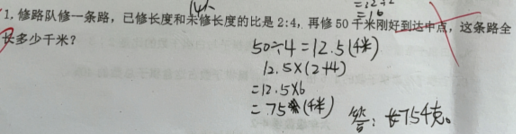 =12÷2
=16
1. 修路队修一条路，已修长度和未修长度的比是2:4，再修50千米刚好到达中点，这条路全
长多少千米？
50÷4=12.5(千米)
12.5×(2+4)
=12.5×6
=75(千米)
答：长75千克。